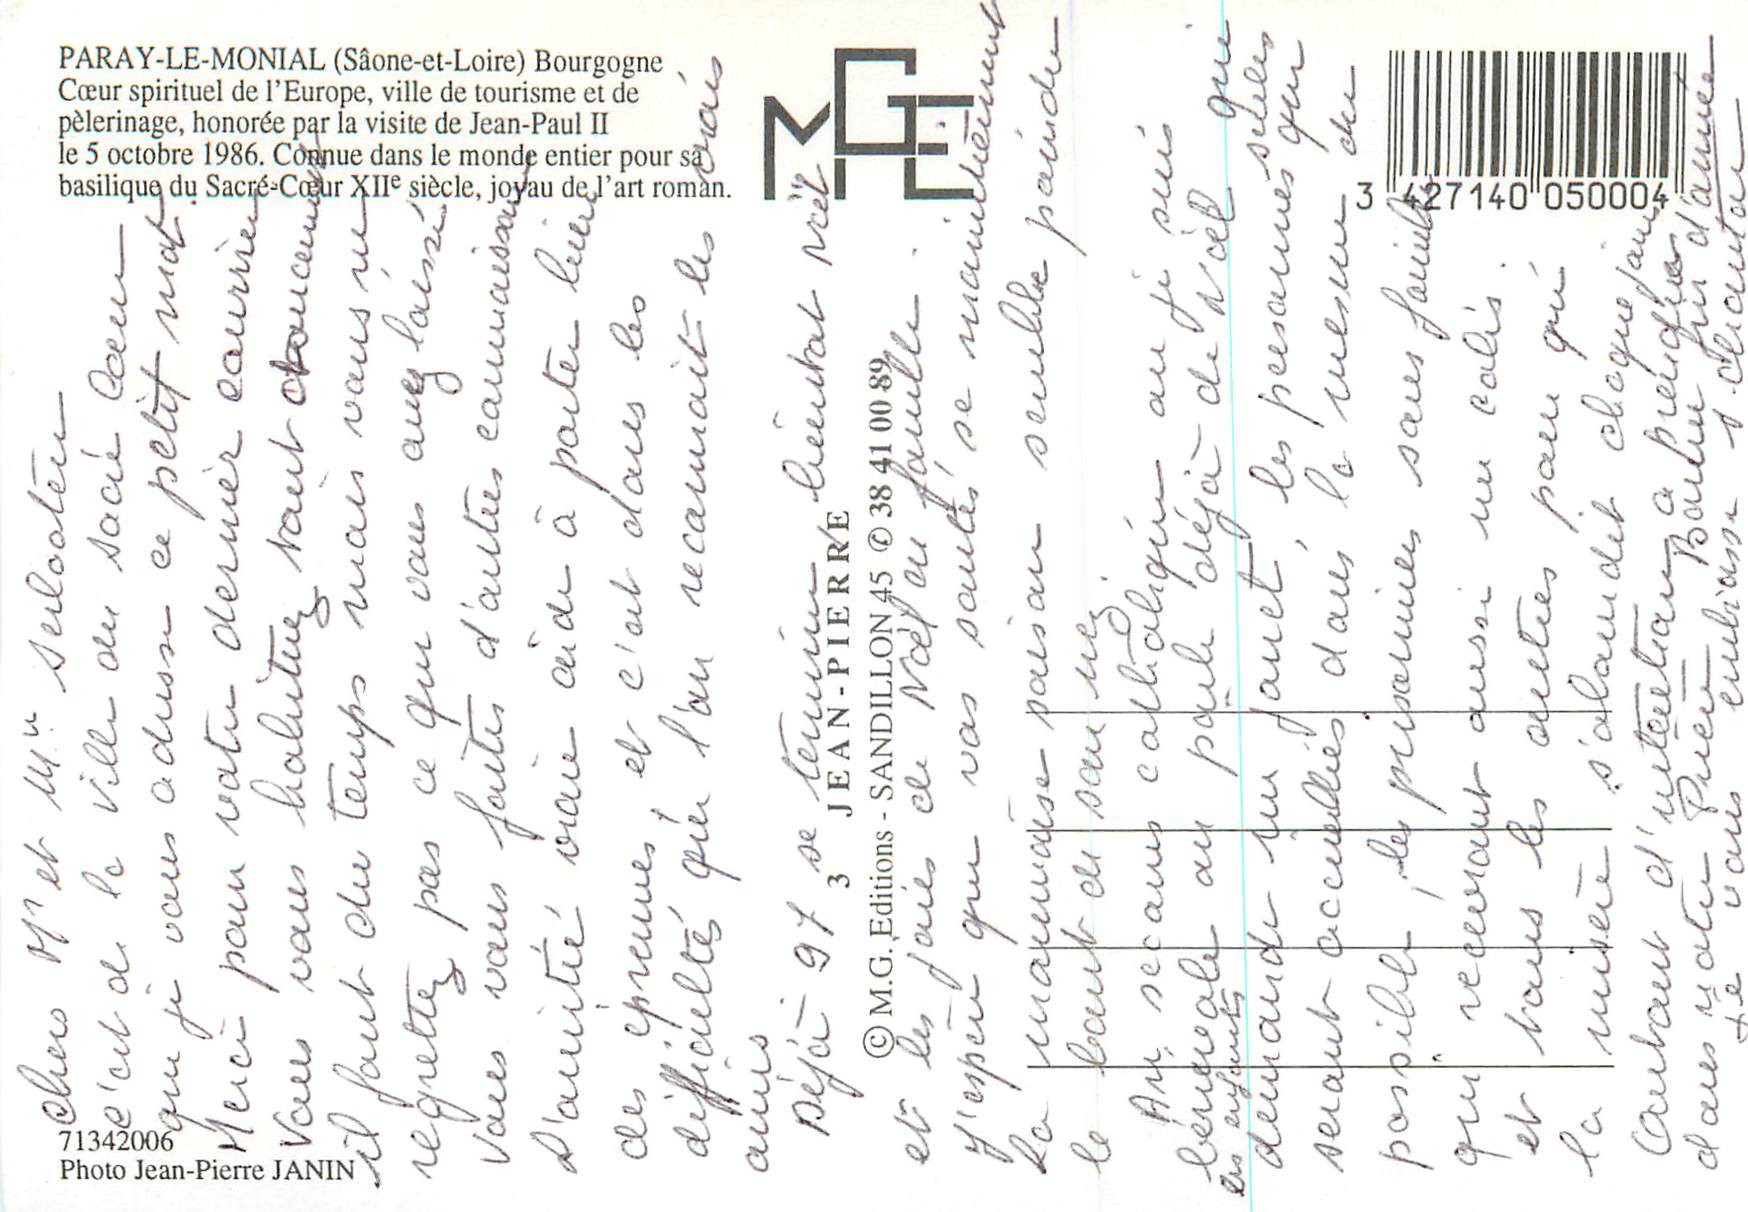 PARAY-LE-MONIAL (Sâone-et-Loire) Bourgogne
Cœur spirituel de l'Europe, ville de tourisme et de
pèlerinage, honorée par la visite de Jean-Paul II
le 5 octobre 1986. Connue dans le monde entier pour sa
basilique du Sacré-Cœur XIIe siècle, joyau de l'art roman.
MGE
3 427140 050004
3 JEAN-PIERRE
© M.G. Editions - SANDILLON 45 ✆ 38 41 00 89
71342006
Photo Jean-Pierre JANIN
Chers Mr et Mme
c'est de la ville du sacré Cœur
que je vous adresse ce petit mot
Merci pour votre dernier courrier
Vous vous habituez tout doucement
il faut du temps mais vous ne
regrettez pas ce que vous avez laissé
Vous vous faites d'autres connaissances
D'amitié vous aide à porter bien
des épreuves et c'est dans les
difficultés que l'on reconnait les vrais
amis
Déjà 97 se termine bientot Noël
et les joies de Noël en famille.
J'espère que vos santés se maintiennent
La mauvaise saison semble poindre
le bout de son nez
Au secours catholique ou je suis
bénévole on parle déjà de Noël que
les enfants
demande un jouet les personnes seules
seront accueillies dans la mesure du
possible, les prisonniers sans famille
qui recevront aussi un colis
et tous les autres pour qui
la misère s'alourdit chaque jour
Autant d'intentions à prendre
dans notre Prière Bonne fin d'année
Je vous embrasse